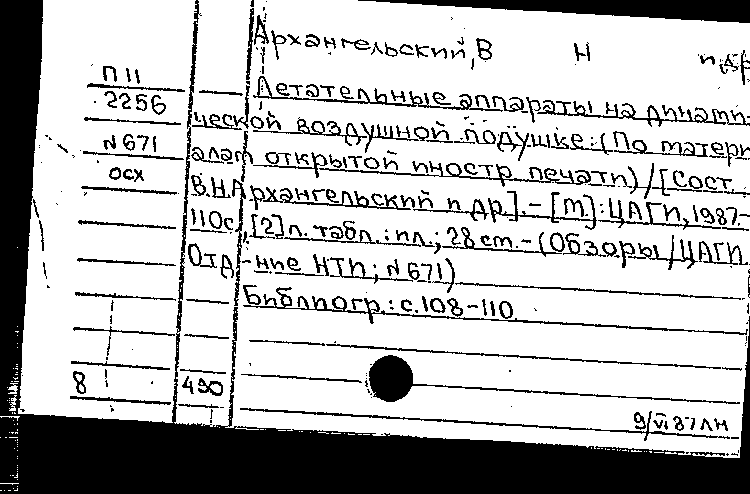 Архангельский, В Н и др
П 11
2256
N 671
осх
Летательные аппараты на динами-
ческой воздушной подушке: (По матери-
алам открытой иностр печати) / [Сост.
В.Н.Архангельский и др]. - [М]: ЦАГИ, 1987-
110с, [2]л. табл.: ил.; 28 cm. - (Обзоры / ЦАГИ.
Отд-ние НТИ; N 671)
Библиогр.: с.108-110
8 490
9/VI 87 ЛН